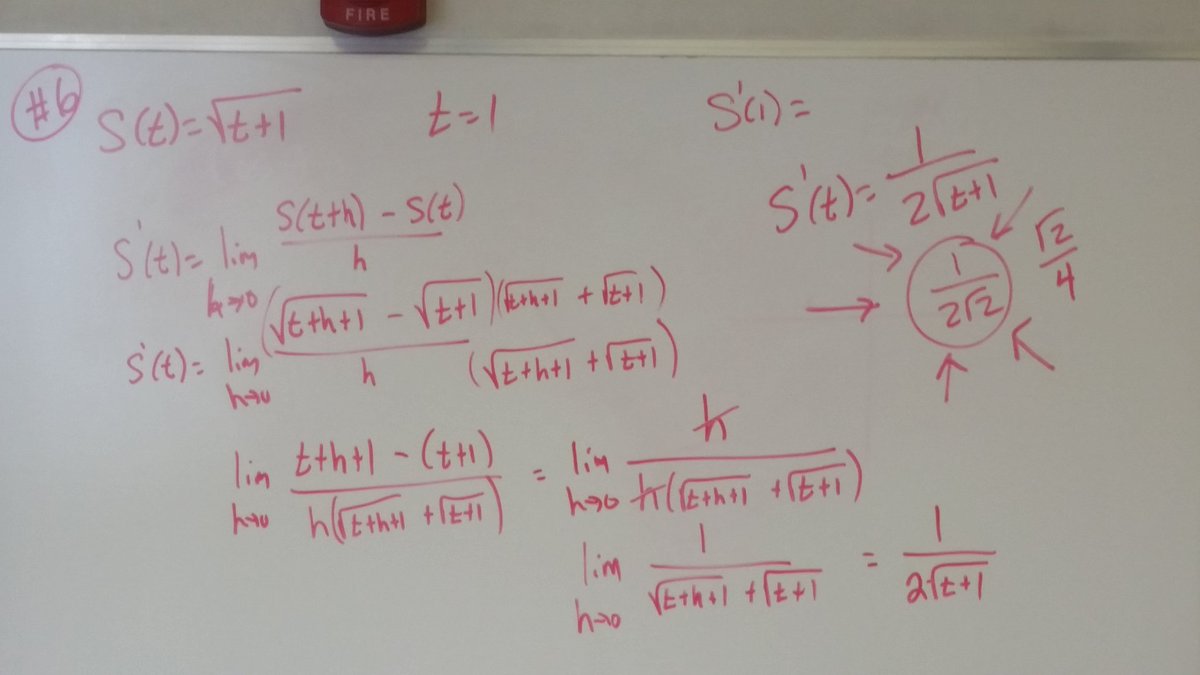 FIRE
#6 S(t)=√(t+1) t=1 S'(1)=
S'(t)= 1/(2√(t+1))
S'(t)= lim h→0 (S(t+h) - S(t))/h
1/(2√2) √2/4
S'(t)= lim h→0 (√(t+h+1) - √(t+1))(√(t+h+1) + √(t+1)) / h (√(t+h+1) + √(t+1))
lim h→0 (t+h+1 - (t+1))/(h(√(t+h+1) + √(t+1))) = lim h→0 h/(h(√(t+h+1) + √(t+1)))
lim h→0 1/(√(t+h+1) + √(t+1)) = 1/(2√(t+1))